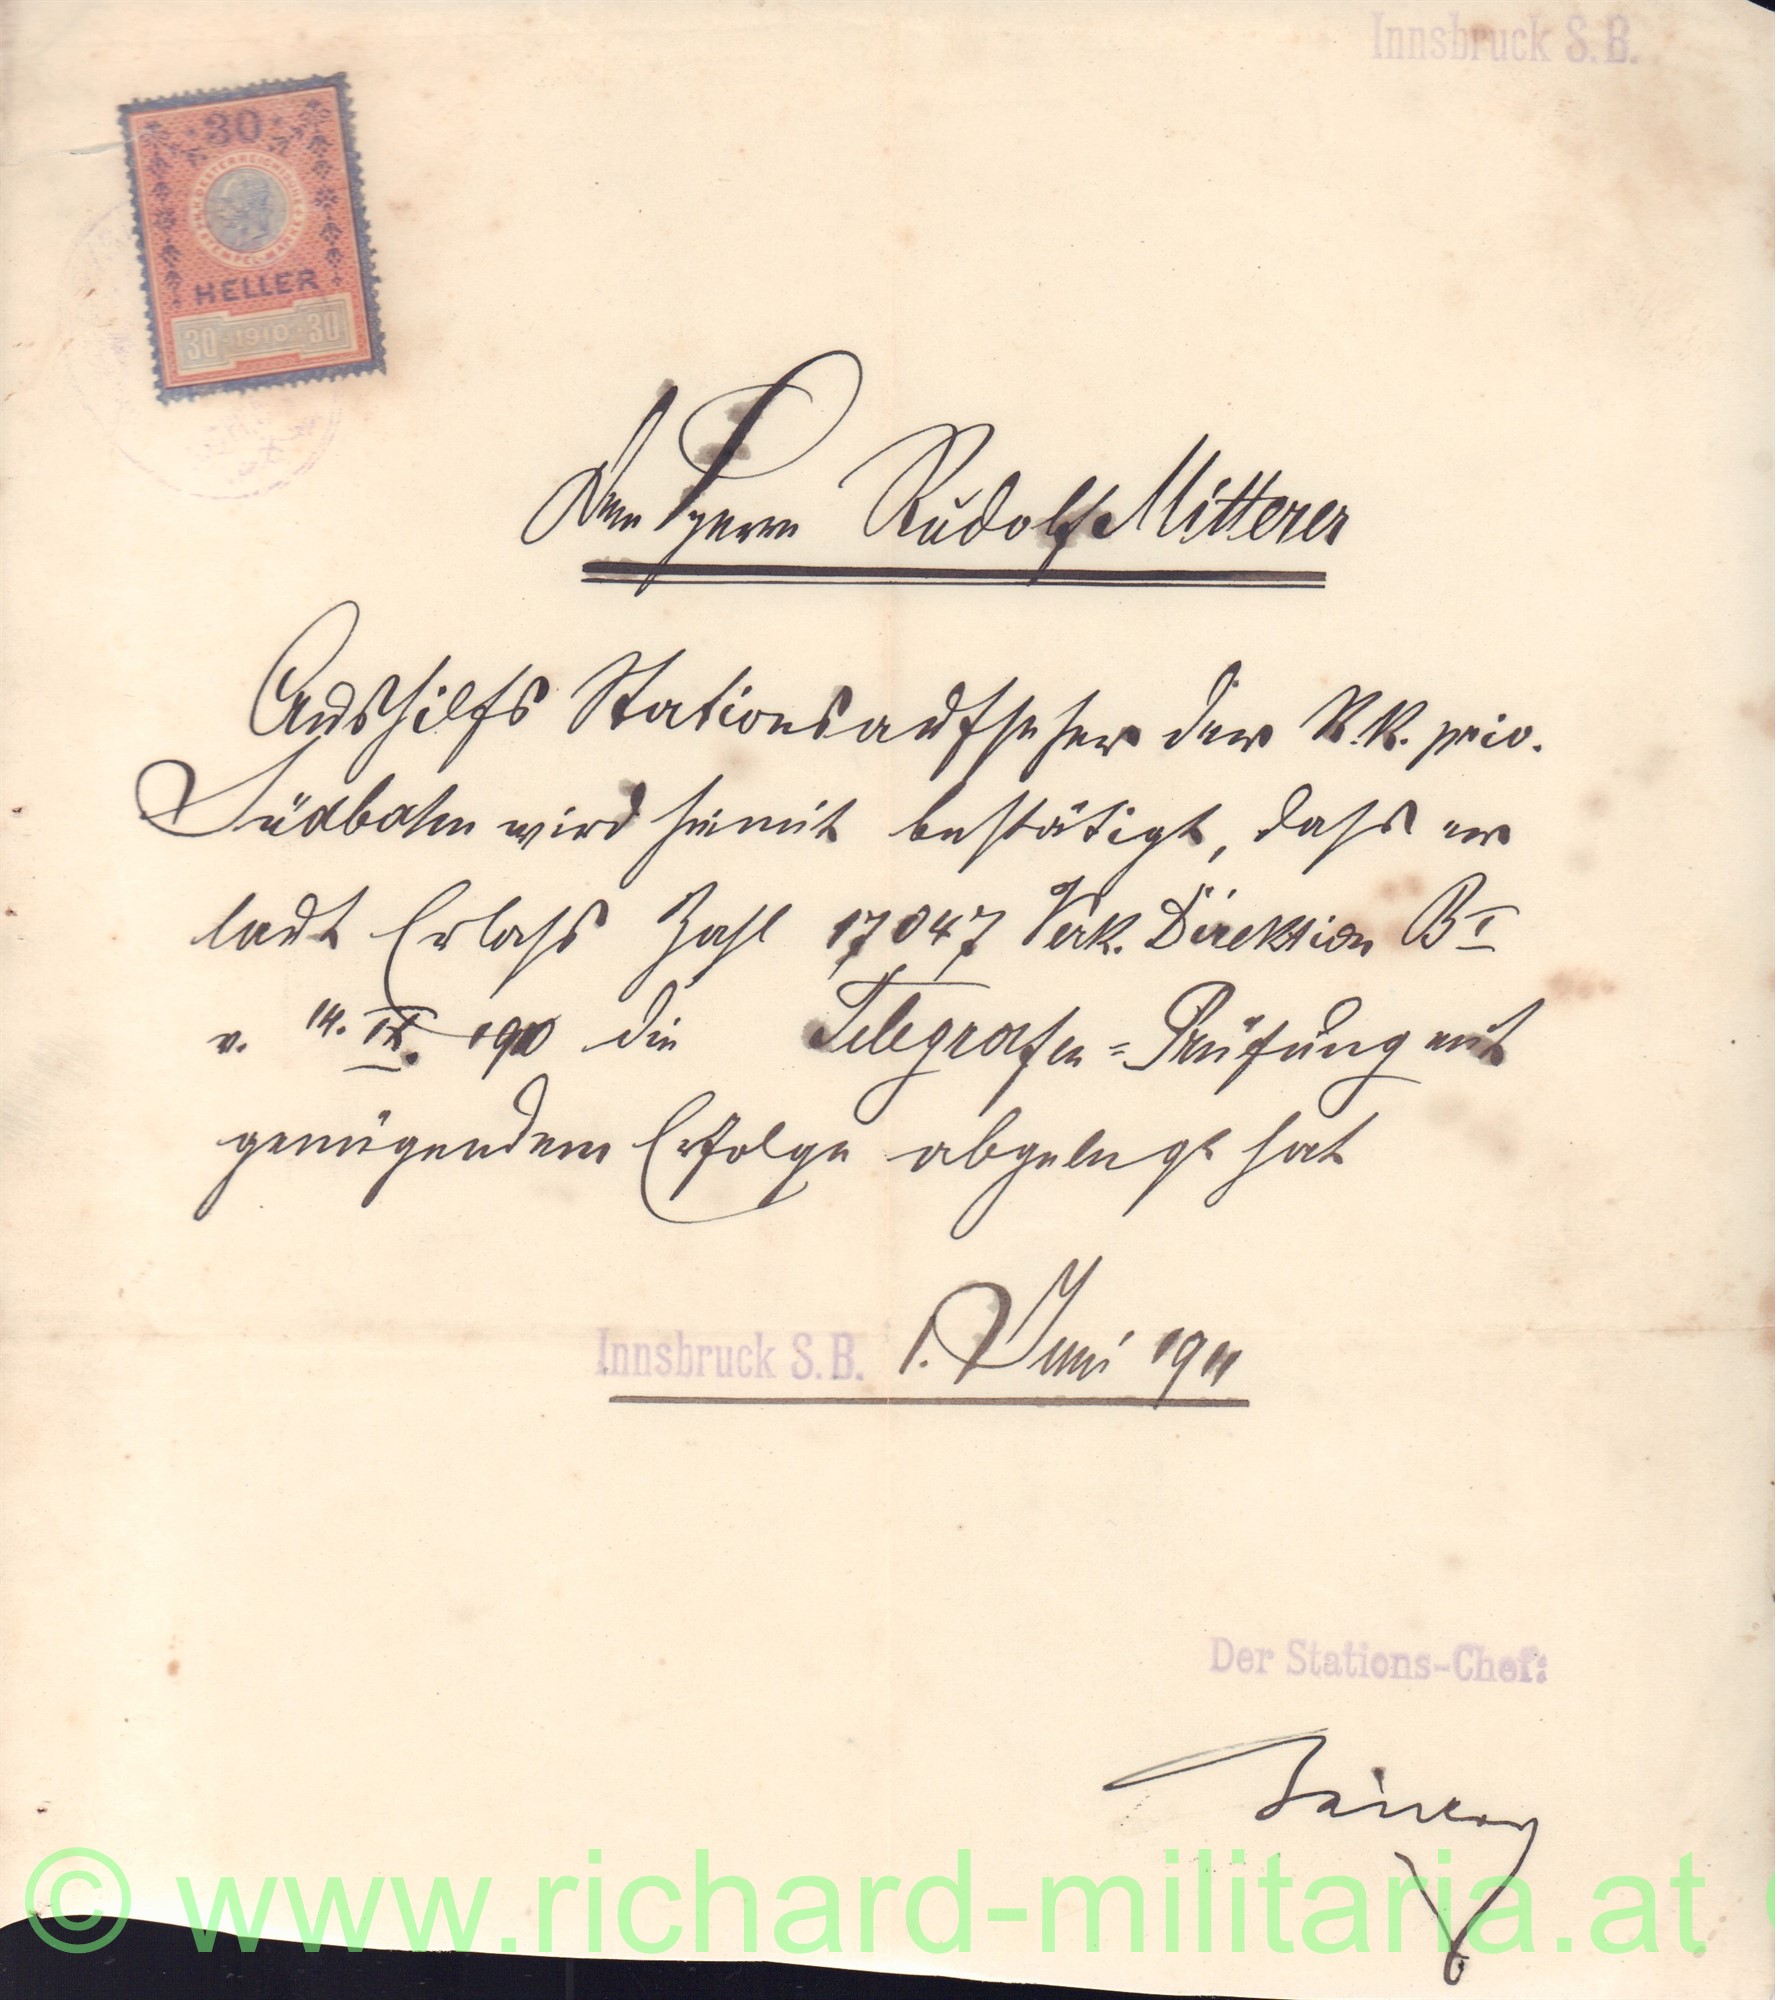 Innsbruck S. B.
30
HELLER
30 1910 30
Dem Herrn Rudolf Mitterer
Aushilfs Stationsaufseher der K. K. priv.
Südbahn wird hiemit bestätigt, dass er
laut Erlass Zahl 17047 Verk. Direktion B I
v. 14. IX. 1910 die Telegrafen=Prüfung mit
genügendem Erfolge abgelegt hat
Innsbruck S. B. 1. Juni 1911
Der Stations-Chef:
© www.richard-militaria.at ©